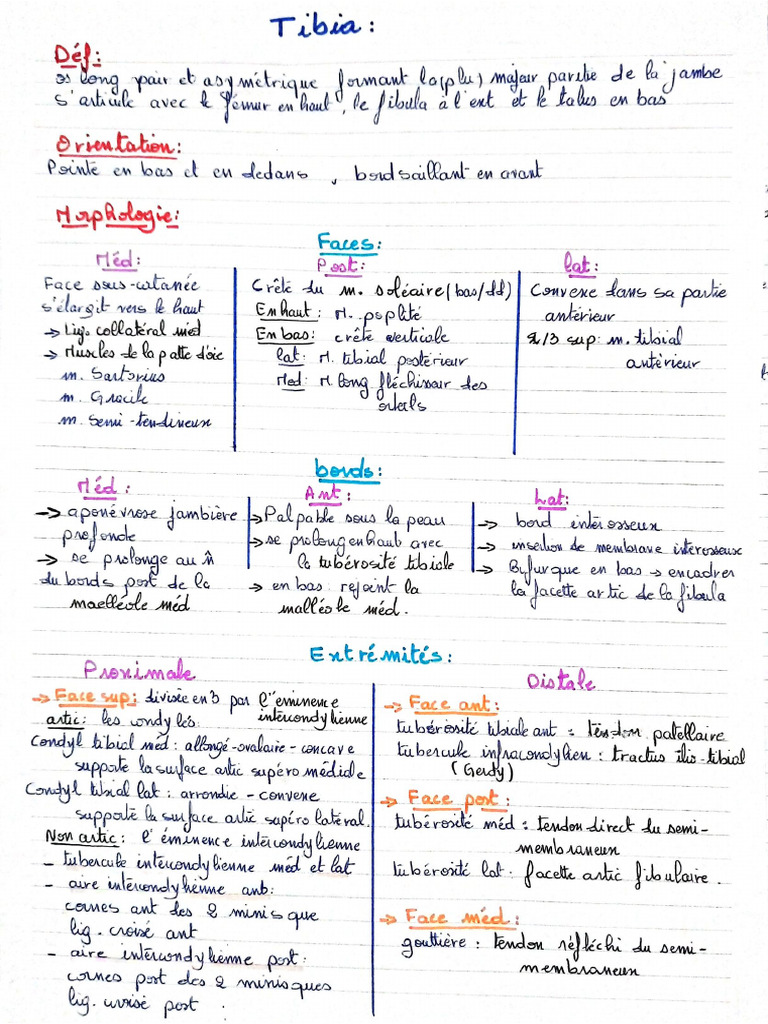 Tibia :
Déf :
os long pair et asymétrique formant la (plu) majeur partie de la jambe
s'articule avec le fémur en haut, le fibula à l'ext et le talus en bas
Orientation :
Pointe en bas et en dedans , bord saillant en avant
Morphologie :
Faces :
Méd :
Face sous-cutanée
s'élargit vers le haut
→ Lig. collatéral méd
→ Muscles de la patte d'oie
m. Sartorius
m. Gracile
m. Semi-tendineux
Post :
Crête du m. soléaire (bas/dd)
En haut : M. poplité
En bas : crête verticale
lat : M. tibial postérieur
Med : M. long fléchisseur des
orteils
lat :
Convexe dans sa partie
antérieur
2/3 sup : m. tibial
antérieur
bords :
Méd :
→ aponévrose jambière
profonde
→ se prolonge au n̄
du bords post de la
maelléole méd
Ant :
→ Palpable sous la peau
→ se prolong en haut avec
la tubérosité tibiale
→ en bas : rejoint la
malléole méd.
Lat :
→ bord intérosseux
→ insertion de membrave interosseux
→ Bifurque en bas → encadrer
la facette artic de la fibula
Extrémités :
Proximale
→ Face sup : divisée en 3 par l'éminence
intercondylienne
artic : les condylés
Condyl tibial méd : allongé-ovalaire - concave
supporte la surface artic supéro médiale
Condyl tibial lat : arrondie - convexe
supporte la surface artic supéro latéral.
Non artic : l'éminence intercondylienne
- tubercule intercondylienne méd et lat
- aire intercondylienne ant :
cornes ant des 2 minisque
lig. croisé ant
- aire intercondylienne post :
cornes post des 2 minisques
lig. croisé post .
Distale
→ Face ant :
tubérosité tibiale ant : tendon patellaire
tubercule infracondylien : tractus ilio-tibial
(Gerdy)
→ Face post :
tubérosité méd : tendon direct du semi-
membraneux
tubérosité lat : facette artic fibulaire .
→ Face méd :
gouttière : tendon réfléchi du semi-
membraneux